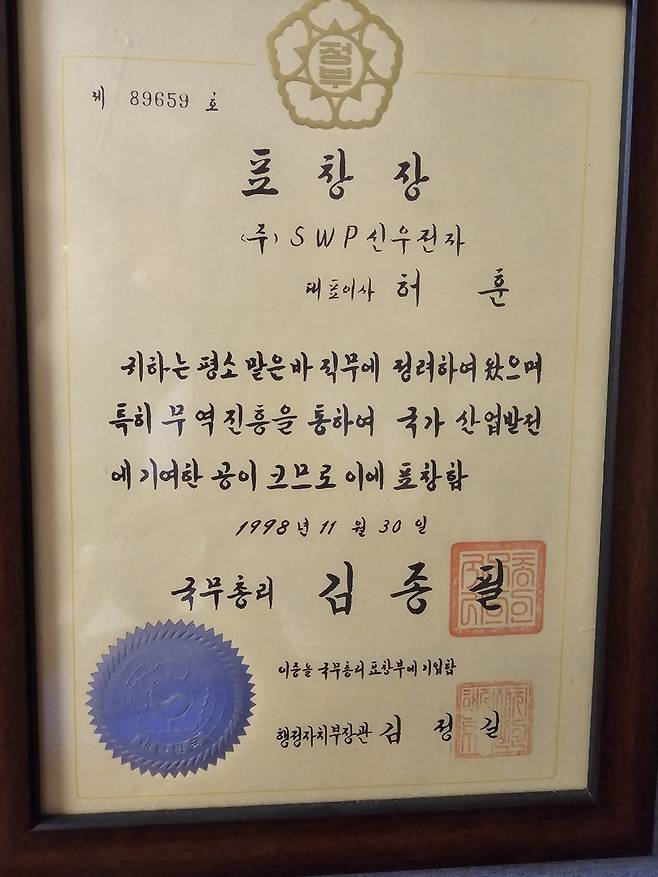 정부
제 89659 호
표창장
(주) SWP신우전자
대표이사 허 훈
귀하는 평소 맡은바 직무에 정려하여 왔으며
특히 무역진흥을 통하여 국가 산업발전
에 기여한 공이 크므로 이에 표창함
1998년 11월 30일
국무총리 김종필
이증을 국무총리 표창부에 기입함
행정자치부장관 김정길